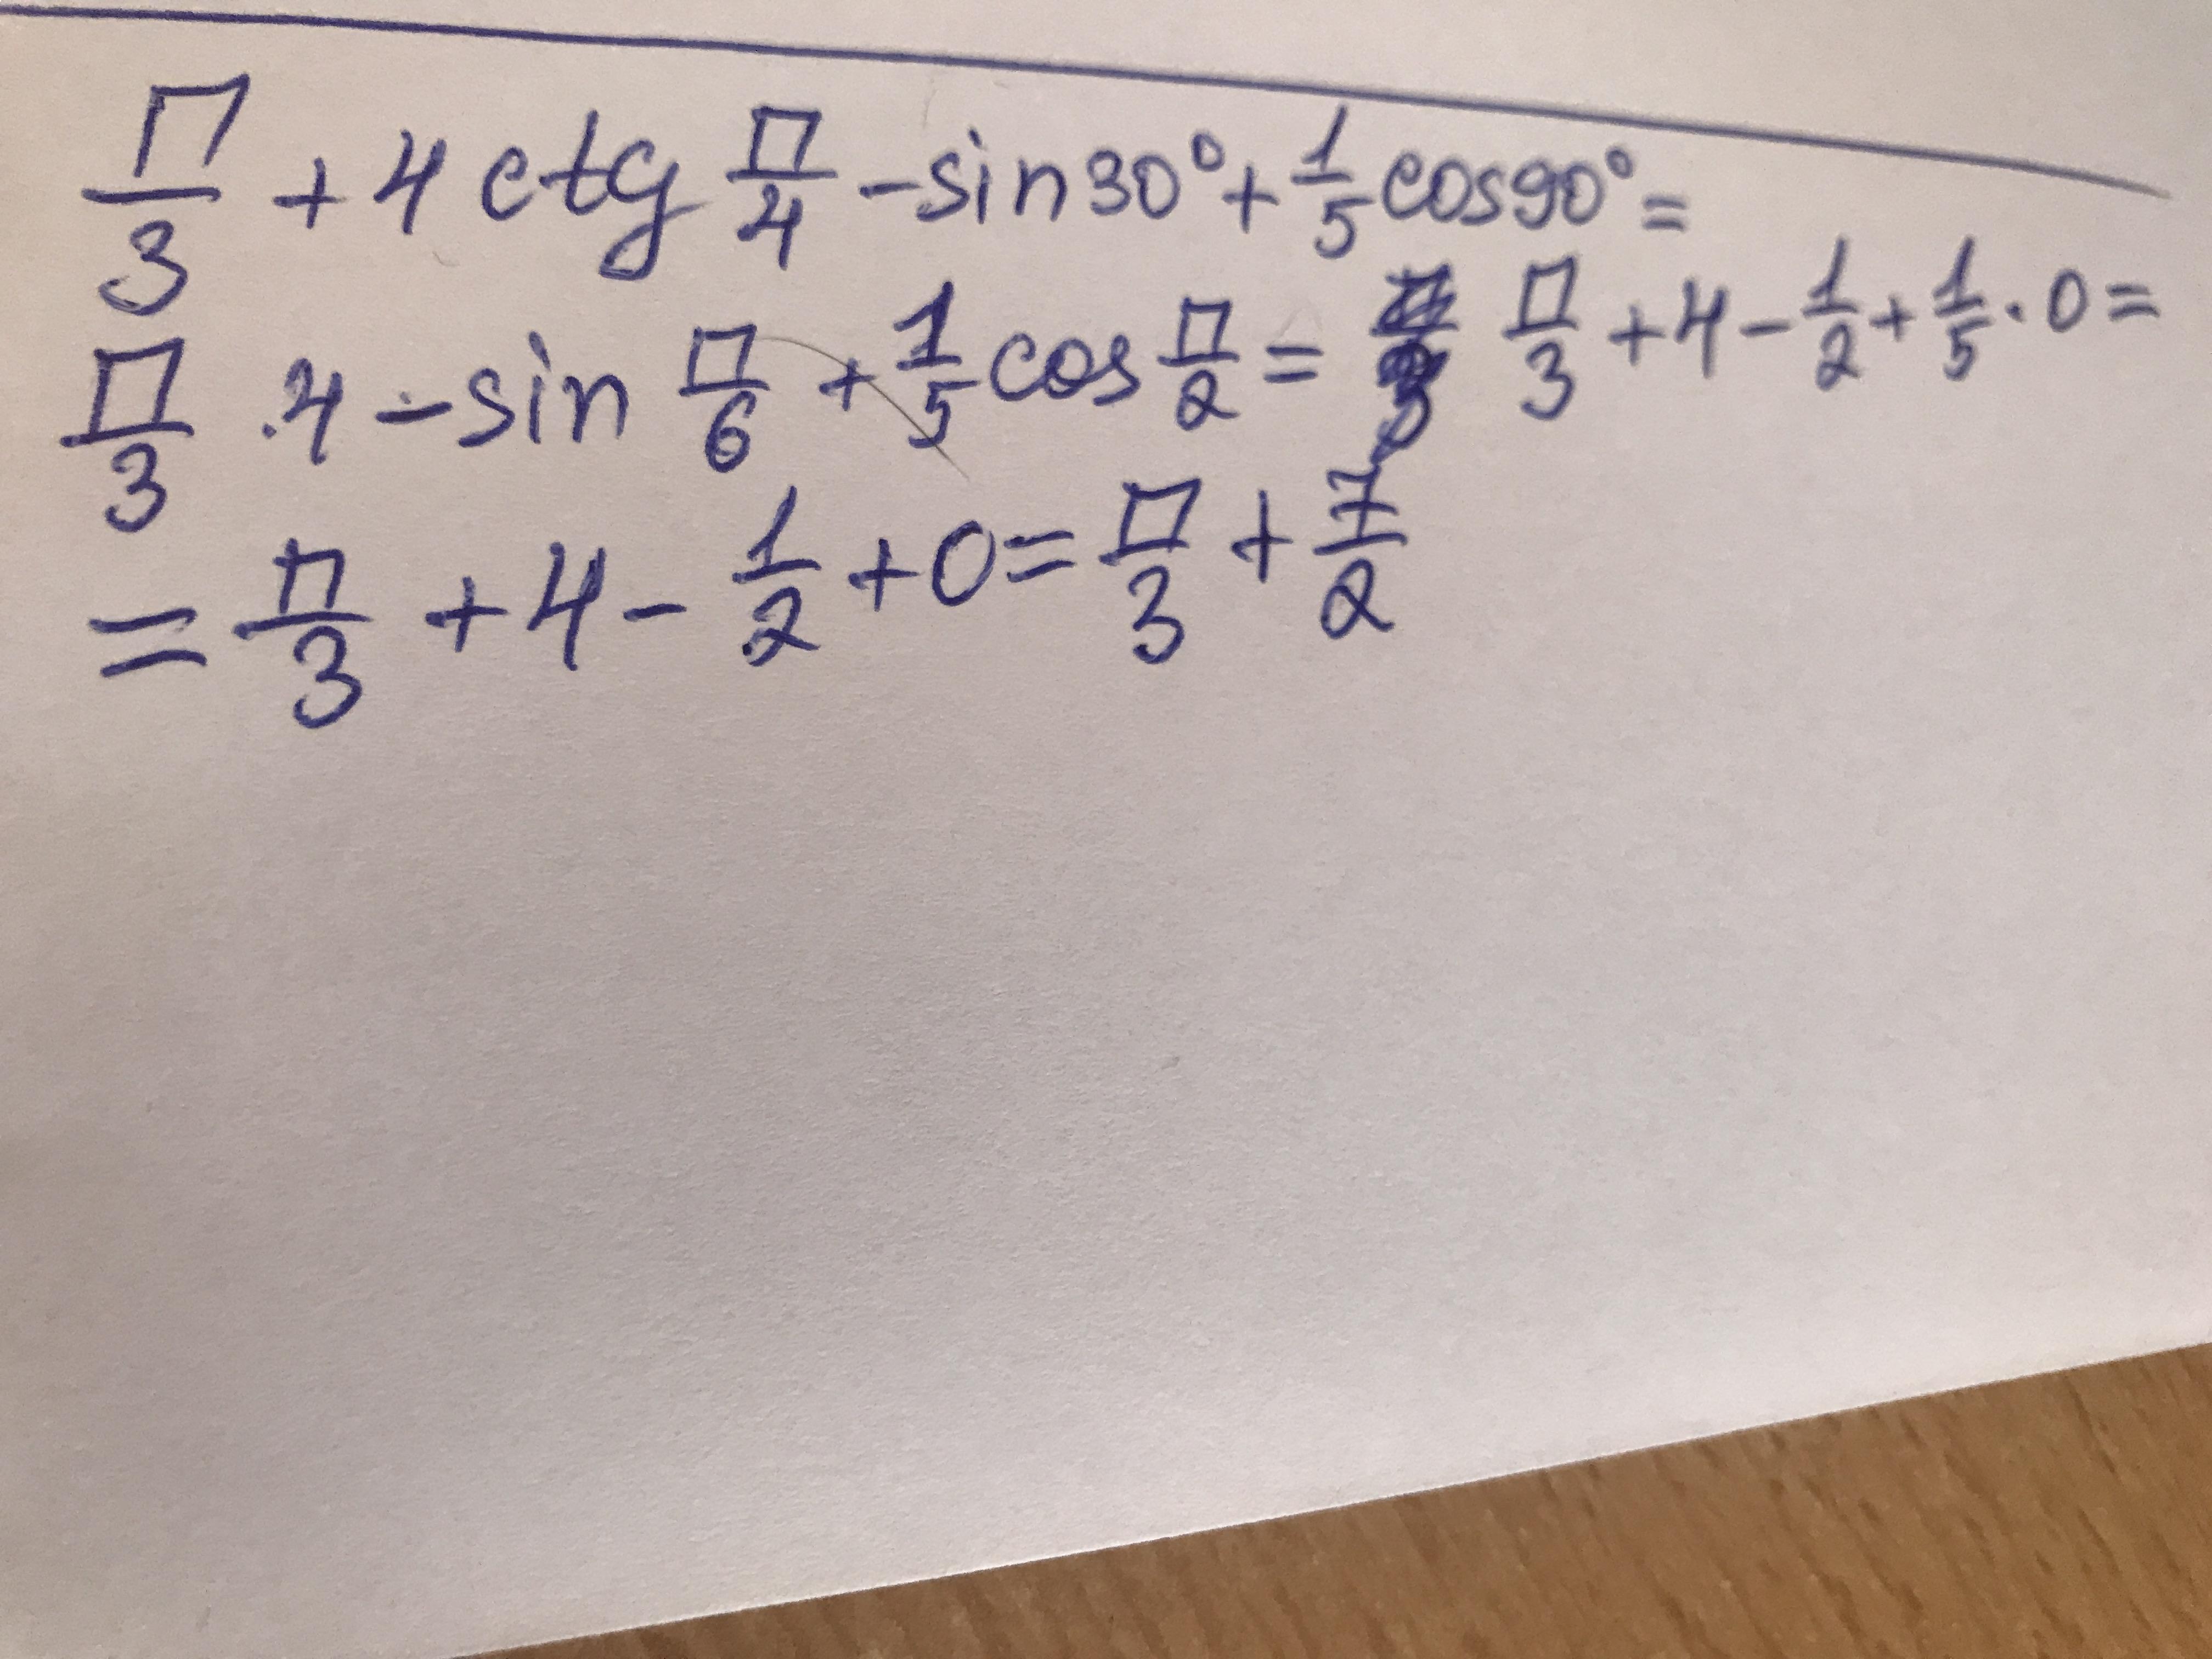 П/3 + 4 ctg П/4 - sin30° + 1/5 cos90° =
П/3 .4 - sin П/6 + 1/5 cos П/2 = П/3 + 4 - 1/2 + 1/5 · 0 =
= П/3 + 4 - 1/2 + 0 = П/3 + 7/2